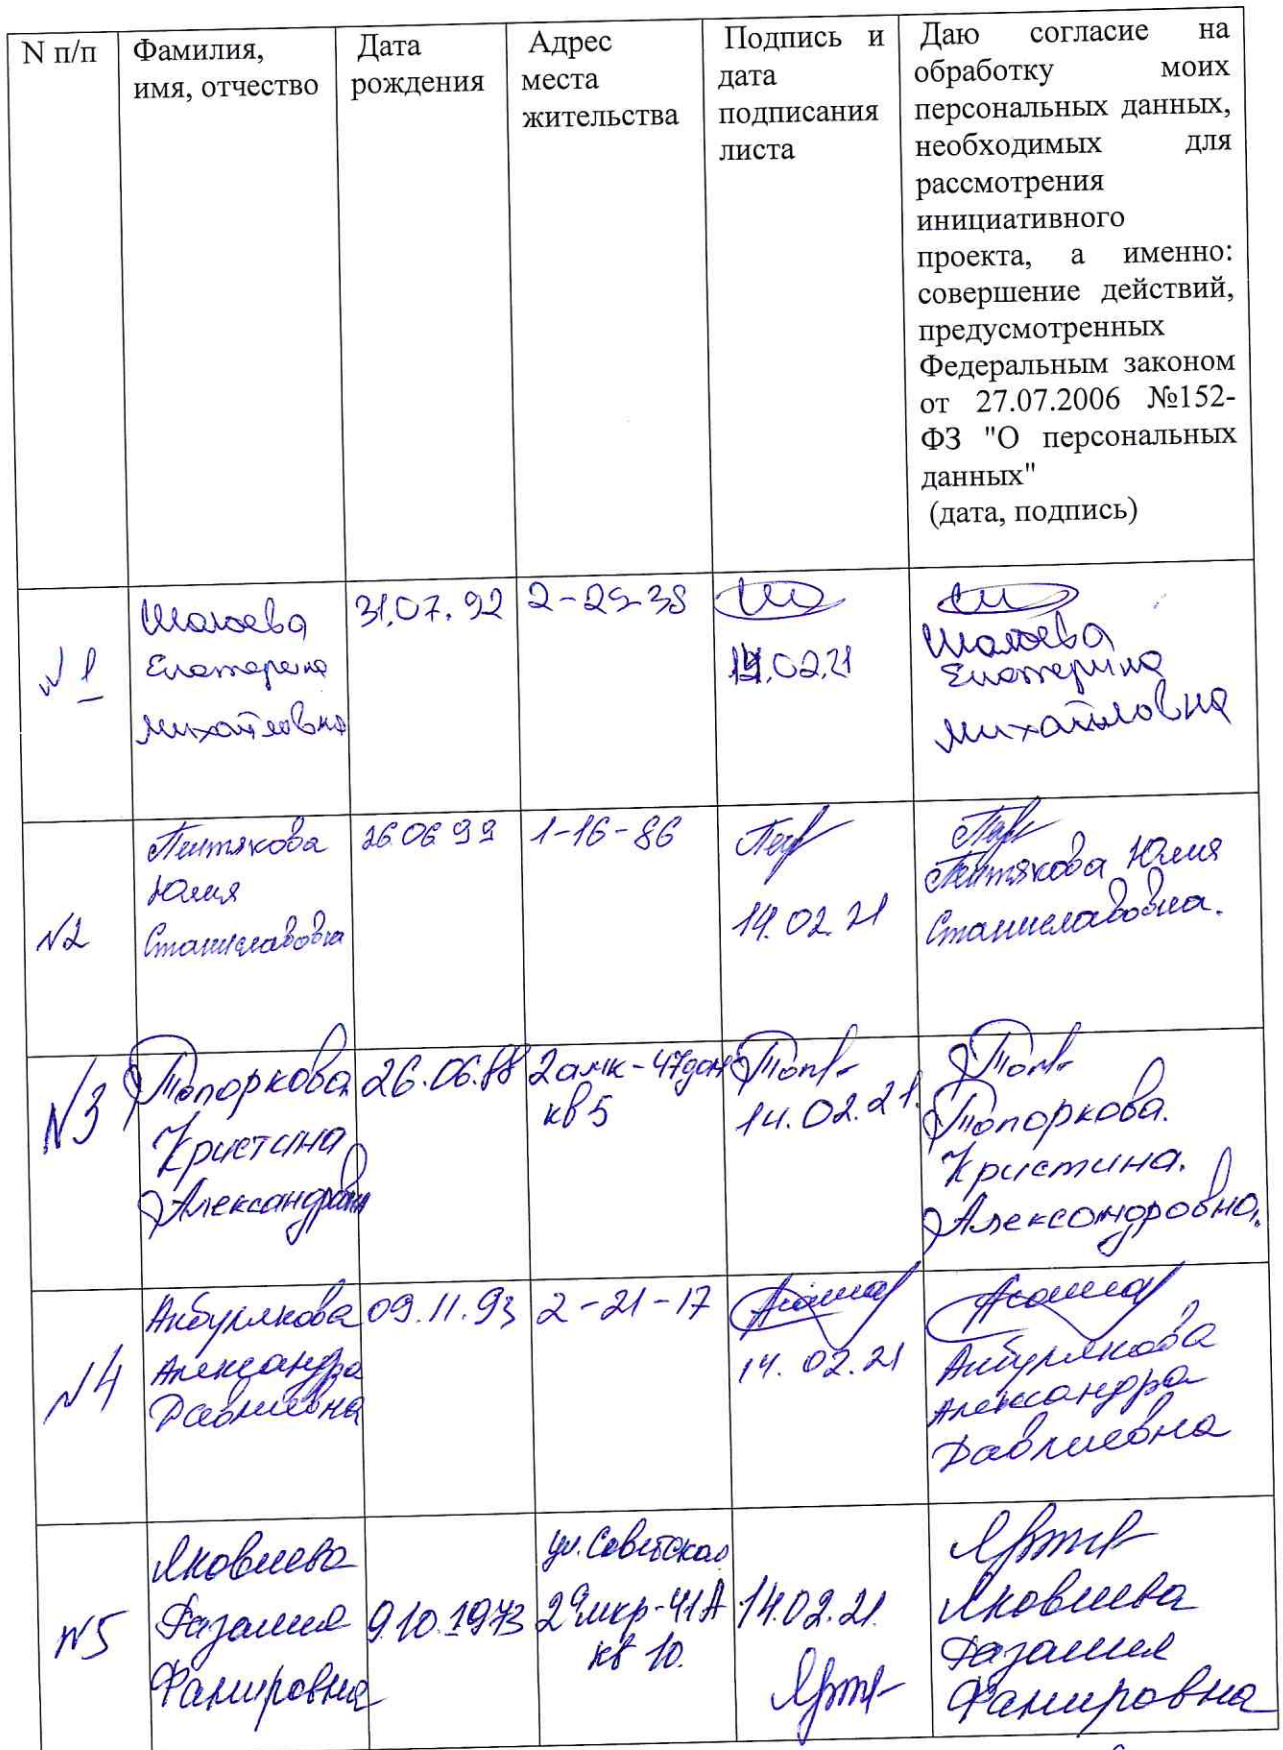 N п/п
Фамилия,
имя, отчество
Дата
рождения
Адрес
места
жительства
Подпись и
дата
подписания
листа
Даю согласие на
обработку моих
персональных данных,
необходимых для
рассмотрения
инициативного
проекта, а именно:
совершение действий,
предусмотренных
Федеральным законом
от 27.07.2006 №152-
ФЗ "О персональных
данных"
(дата, подпись)
N1
Екатерина
Михайловна
31.07.92
2-29-38
14.02.21
Екатерина
Михайловна
N2
Юлия
Станиславовна
26.06.99
1-16-86
14.02.21
Юлия
Станиславовна.
N3
Топоркова
Кристина
Александровна
26.06.88
2амк-47дом
кв 5
14.02.21.
Топоркова.
Кристина.
Александровна.
N4
Александра
Давлиевна
09.11.93
2-21-17
14.02.21
Александра
Давлиевна
N5
Яковлева
Фанировна
9.10.1973
ул. Советская
29мкр-41А
кв 10.
14.02.21.
Яковлева
Фанировна